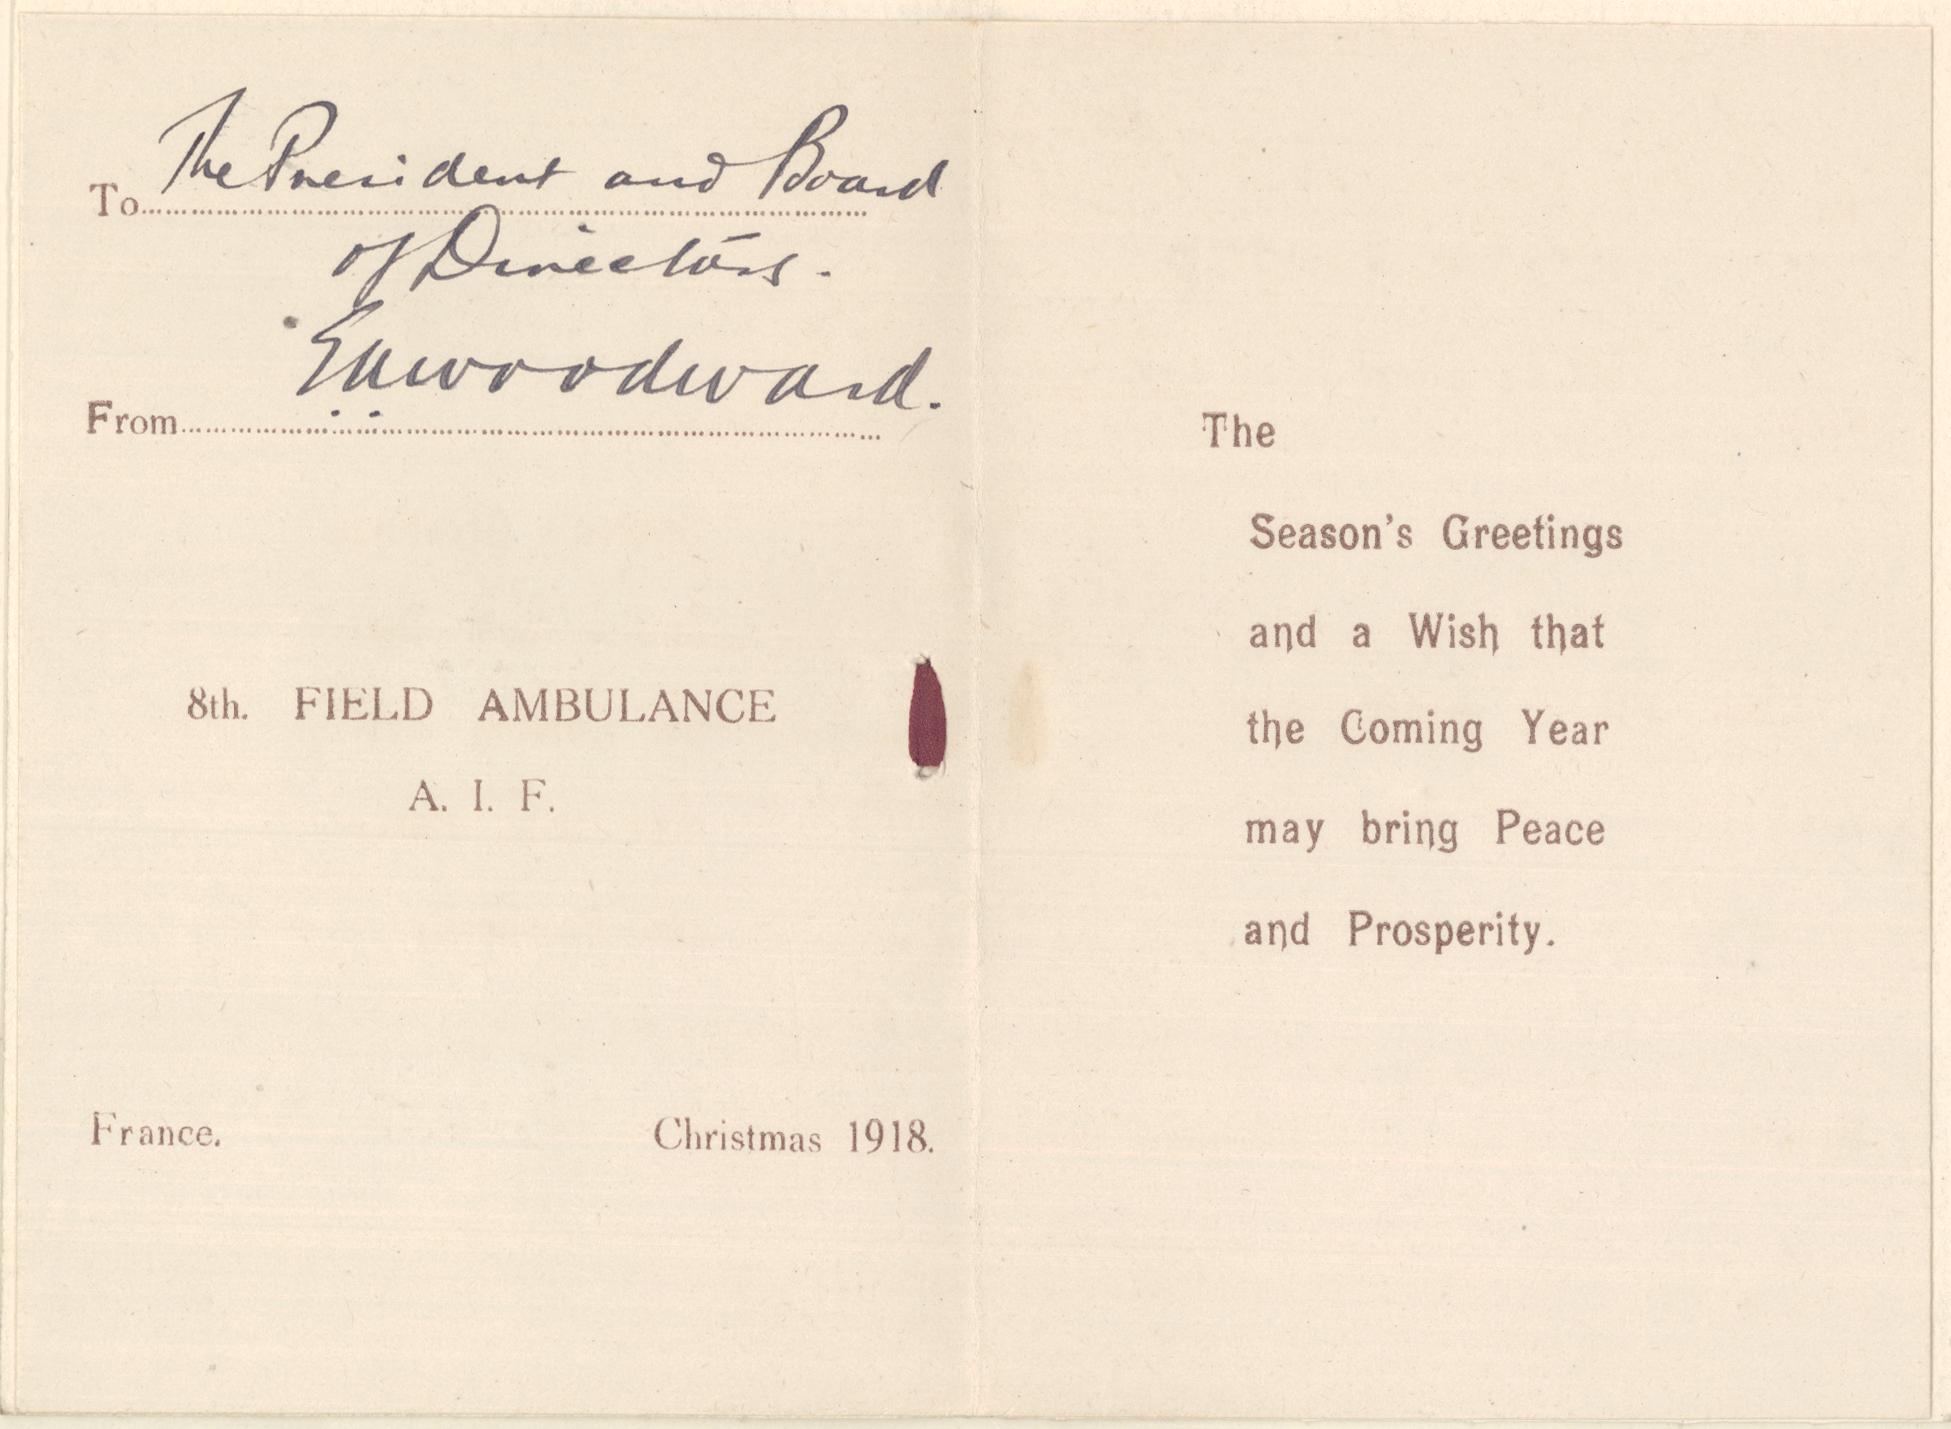 To The President and Board
of Directors.
From EAWoodward.
8th. FIELD AMBULANCE
A. I. F.
France. Christmas 1918.
The
Season's Greetings
and a Wish that
the Coming Year
may bring Peace
and Prosperity.